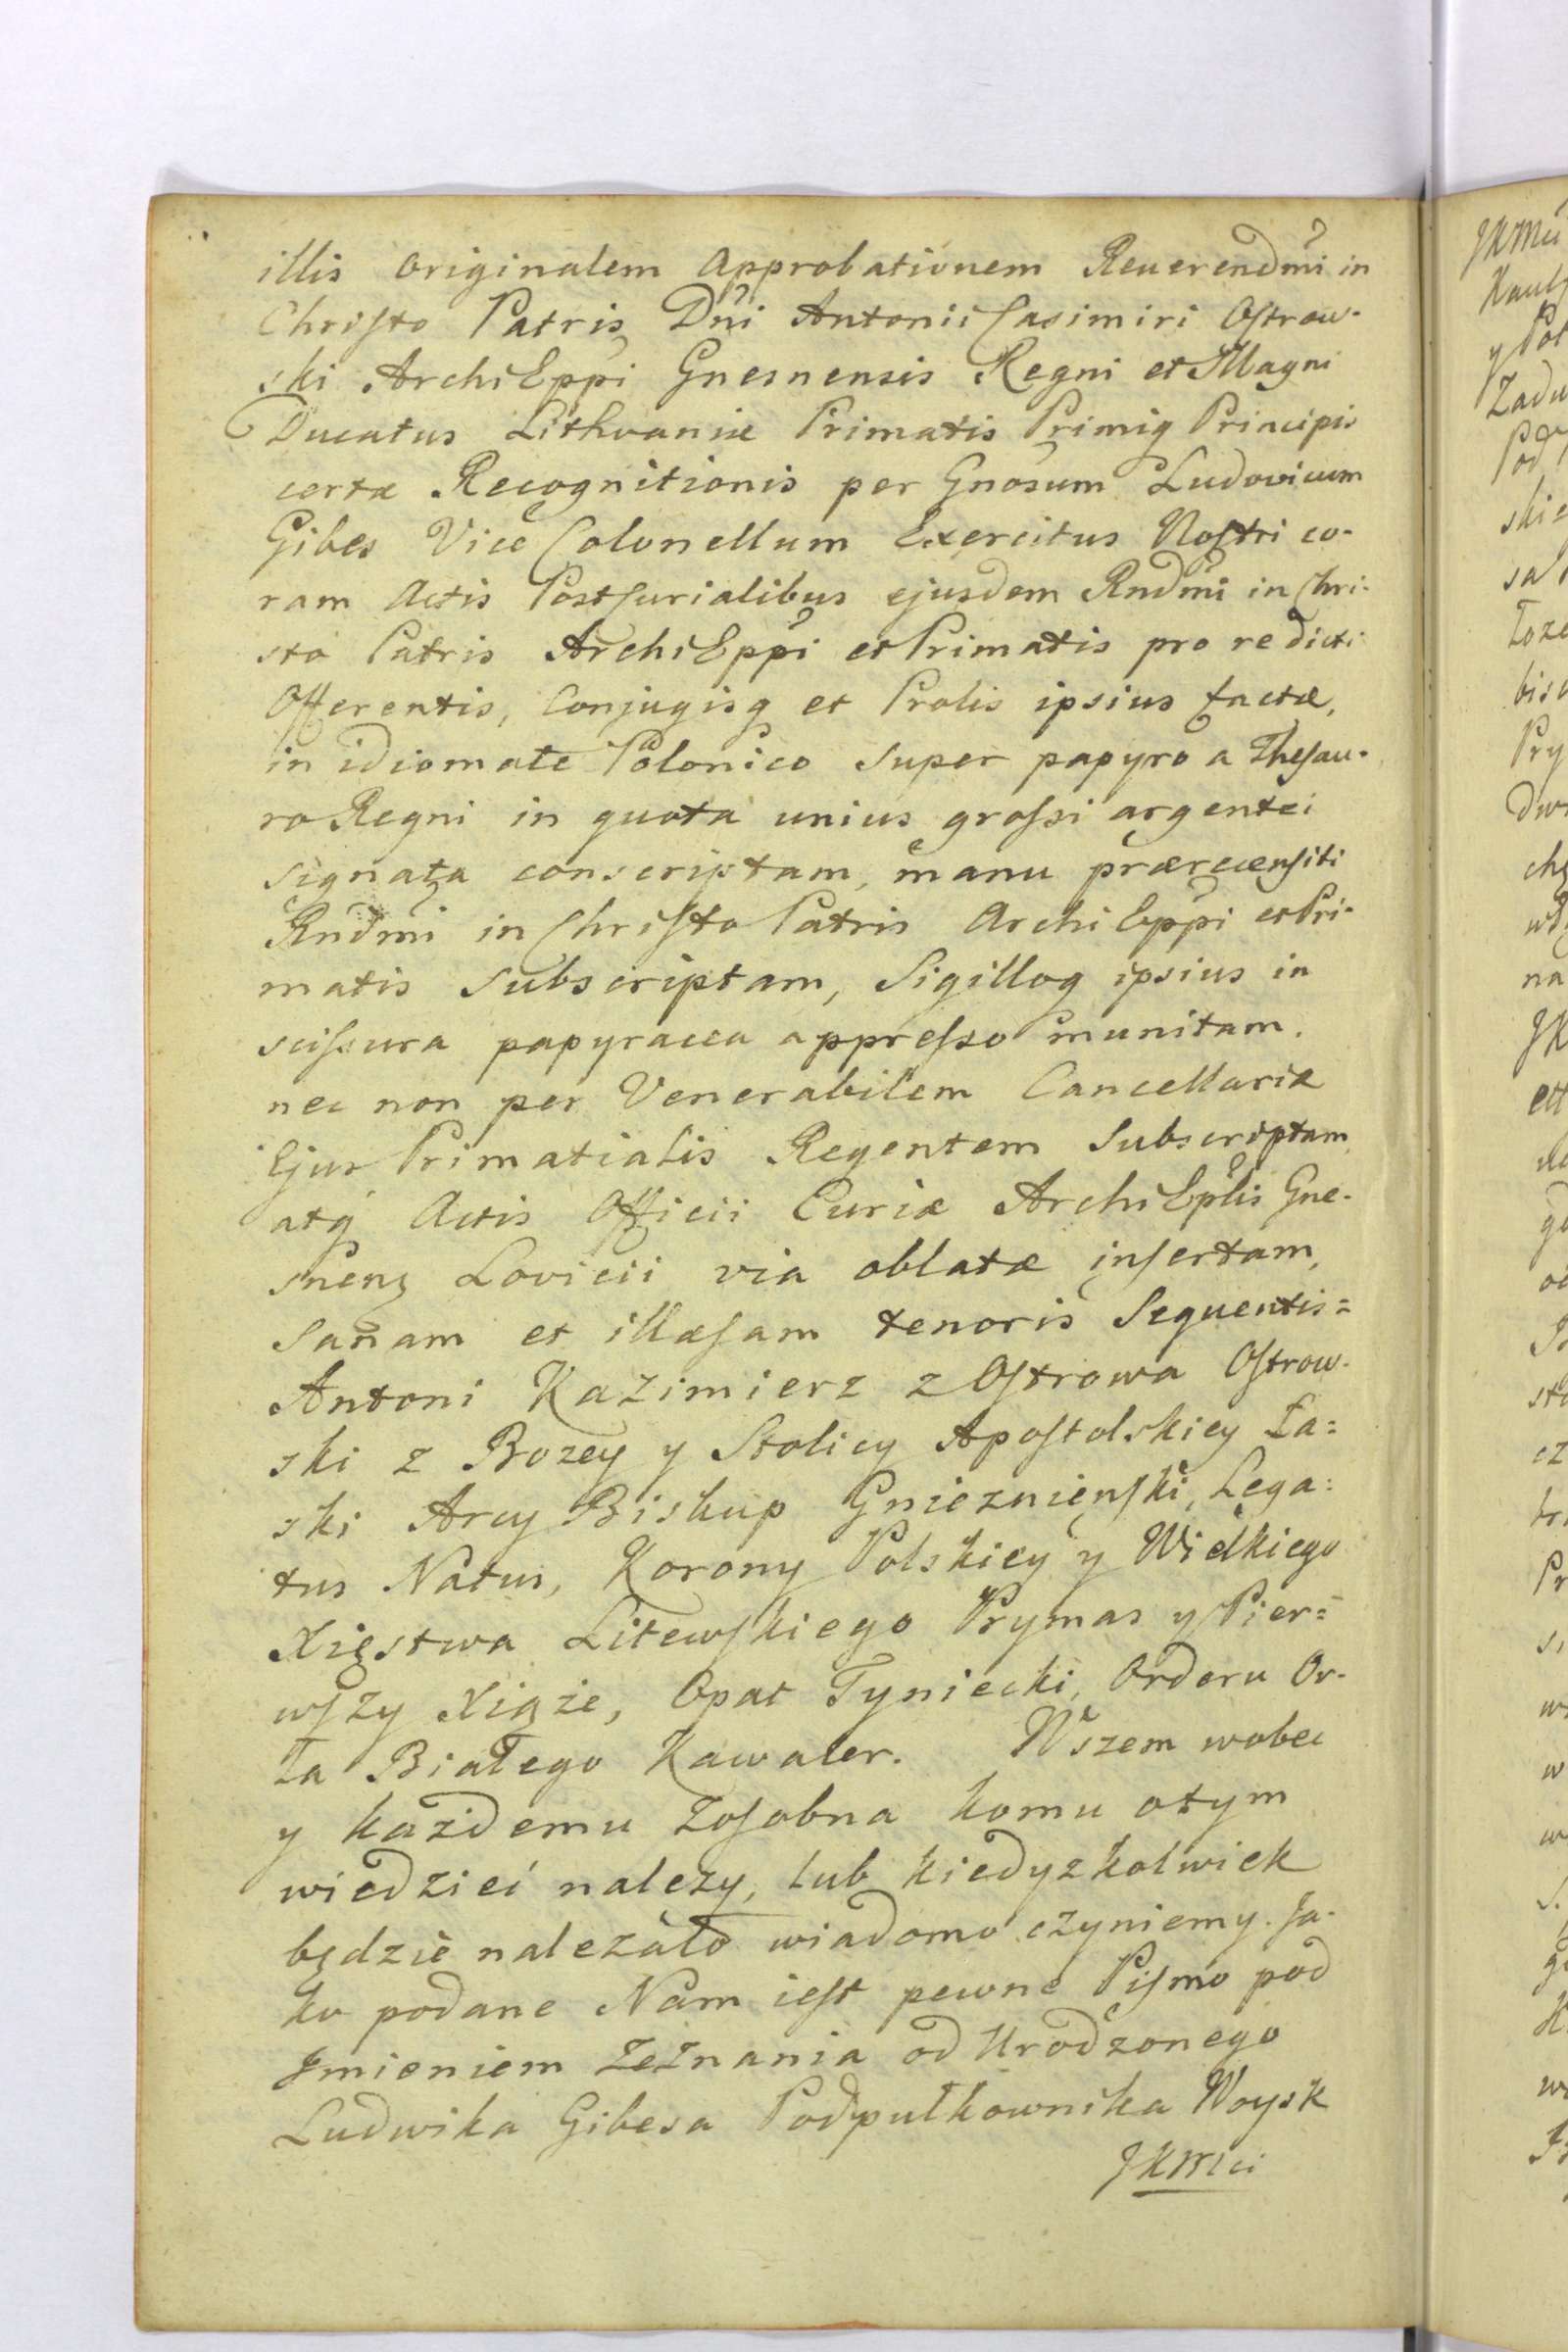 illis originalem Approbationem Reuerendm̃i in
Chriſto Patris Dñi Antonii Casimiri Oſtrow-
ski ArchiEpp̃i Gnesnensis Regni et Magni
Ducatus Lithvaniæ Primatis Primiq Principis
certæ Recognitionis per Gnosum Ludovicum
Gibes Vice Colonellum Exercitus Noſtri co-
ram Actis PostCurialibus ejusdem Rndm̃i in Chri-
sto Patris ArchiEpp̃i et Primatis pro re dicti
Offerentis, Conjugisq et Prolis ipsius factæ,
in idiomate Polonico super papyro a Theſau-
ro Regni in quota unius groſsi argentei
signata conscriptam, manu præreceenſiti
Rndm̃i in Chriſto Patris ArchiEpp̃i et Pri-
matis subscriptam, Sigilloq ipsius in
sciſsura papyracea appreſso munitam.
nec non per Venerabilem Cancellariæ
Ejus Primatialis Regentem Subscriptam
atq Actis Officii Curiæ ArchiEplis Gne-
snenz Lovicii via oblatæ inſertam,
Sanam et illæſam tenoris Sequentis=
Antoni Kazimierz z Oſtrowa Oſtrow-
ski z Bozey y Stolicy Apoſtolskiey Ła=
ski Arcy Biskup Gnieznienſki, Lega=
tus Natus, Korony Polskiey y Wielkiego
Xięstwa Litewſkiego Prymas y Pier=
wſzy Xiąże, Opat Tyniecki, Orderu Or-
ła Białego Kawaler. Wszem wobec
y każdemu zoſobna komu otym
wiedzieć nalezy, lub kiedyzkolwiek
będzie nalezało wiadomo czyniemy. Ja-
ko podane Nam ieſt pewne Piſmo pod
Jmieniem Zeznania od Urodzonego
Ludwika Gibesa Podpułkownika Woysk
JKMci